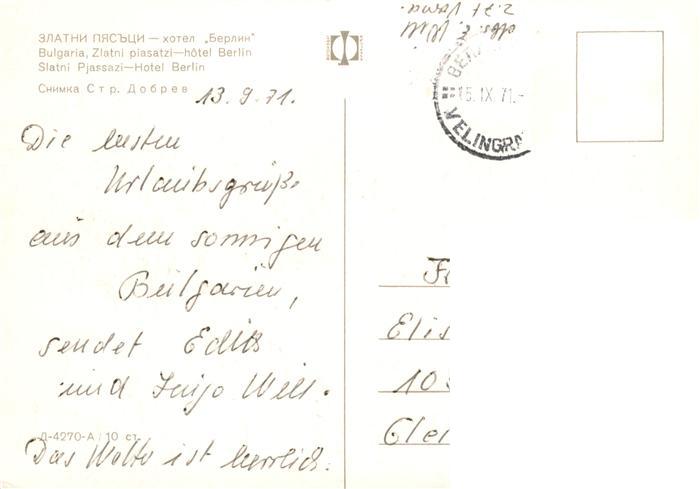 ЗЛАТНИ ПЯСЪЦИ — хотел „Берлин"
Bulgaria, Zlatni piasatzi—hôtel Berlin
Slatni Pjassazi—Hotel Berlin
Снимка Стр. Добрев
13.9.71.
Die besten
Urlaubsgrüße
aus dem sonnigen
Bulgarien,
sendet Edith
und
Д-4270-А / 10 ст.
Das Wetter ist herrlich.
15.IX.71.-
VELINGRA
Fr
Elis
10